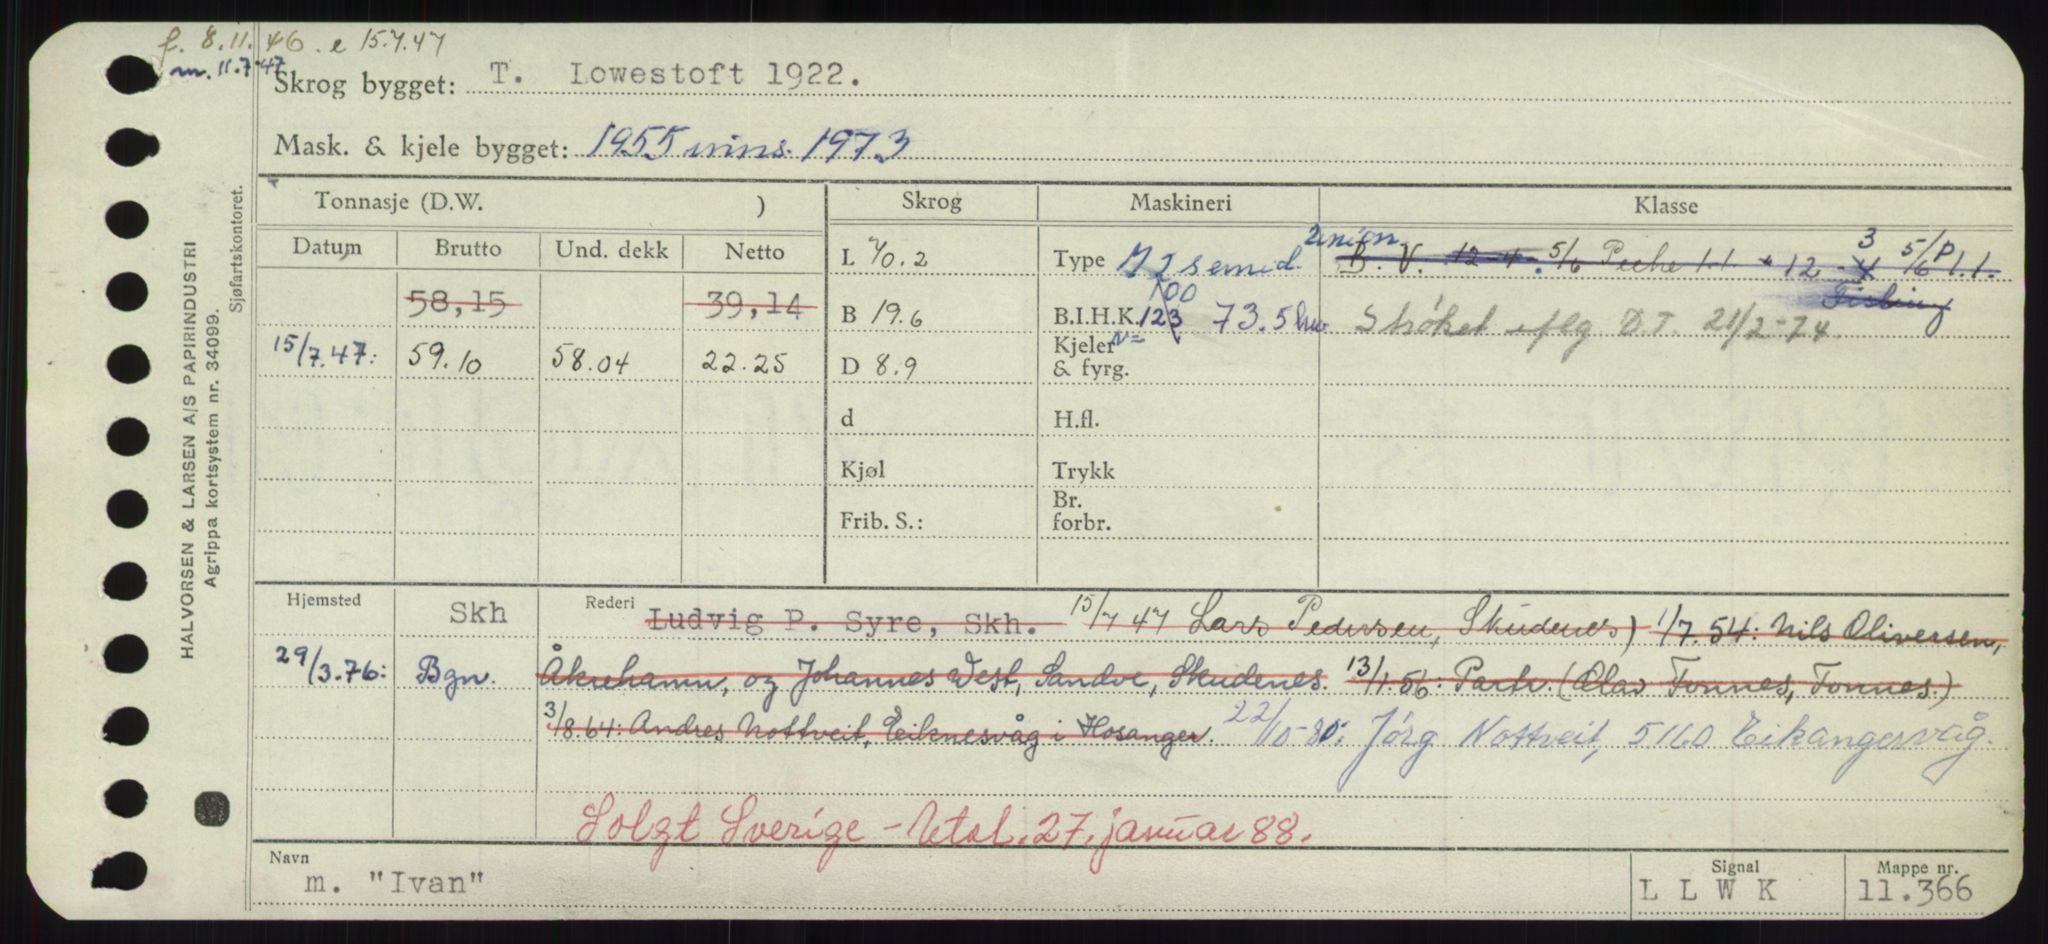 f. 8.11.46. e 15.7.47
m. 11.7.47
Skrog bygget: T. Lowestoft 1922.
Mask. & kjele bygget: 1955 inns. 1973
HALVORSEN & LARSEN A/S PAPIRINDUSTRI
Agrippa kortsystem nr. 34099.
Sjøfartskontoret.
Tonnasje (D.W. ) Skrog Maskineri Klasse
Datum Brutto Und. dekk Netto
58,15 39,14
15/7.47: 59.10 58.04 22.25
L 70.2
B 19.6
D 8.9
d
Kjøl
Frib. S.:
Type semid. Union
B.I.H.K. 123 100 73.5 hw
Kjeler
& fyrg.
H.fl.
Trykk
Br.
forbr.
B. V. 12-4. 5/6 Peche 1.1 12-4 3 5/6 P 1.1.
Fishing
Strøket iflg D.T. 21/2-74.
Hjemsted Skh Rederi Ludvig P. Syre, Skh. 15/7 47 Lars Pedersen, Skudenes) 1/7.54: Nils Oliversen,
29/3.76: Bgn. Åkrehamn, og Johannes West, Sandve, Skudenes. 13/1.56: Partr. (Olav Tonnes, Tonnes.)
3/8.64: Andres Nottveit, Eiknesvåg i Hosanger. 22/10-80: Jørg Nottveit, 5160 Eikangervåg.
Solgt Sverige - Utsl. 27. januar 88.
Navn m. "Ivan" Signal L L W K Mappe nr. 11.366